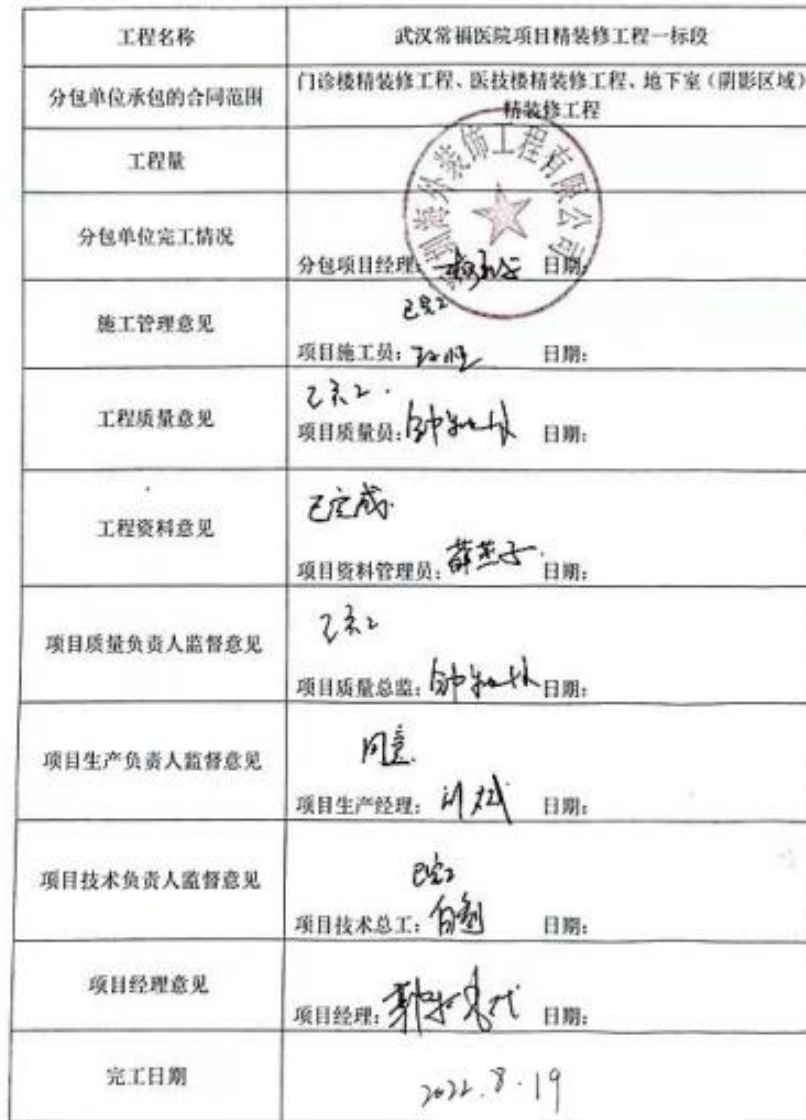 工程名称 武汉常福医院项目精装修工程一标段
分包单位承包的合同范围 门诊楼精装修工程、医技楼精装修工程、地下室（阴影区域）
精装修工程
工程量
圳海外装饰工程有限公司
分包单位完工情况
分包项目经理: 日期:
已完工
施工管理意见
项目施工员: 日期:
已完工.
工程质量意见
项目质量员: 日期:
已完成.
工程资料意见
项目资料管理员: 薛芷子. 日期:
已完工
项目质量负责人监督意见
项目质量总监: 日期:
同意.
项目生产负责人监督意见
项目生产经理: 日期:
已完工
项目技术负责人监督意见
项目技术总工: 日期:
项目经理意见
项目经理: 日期:
完工日期 2022.8.19